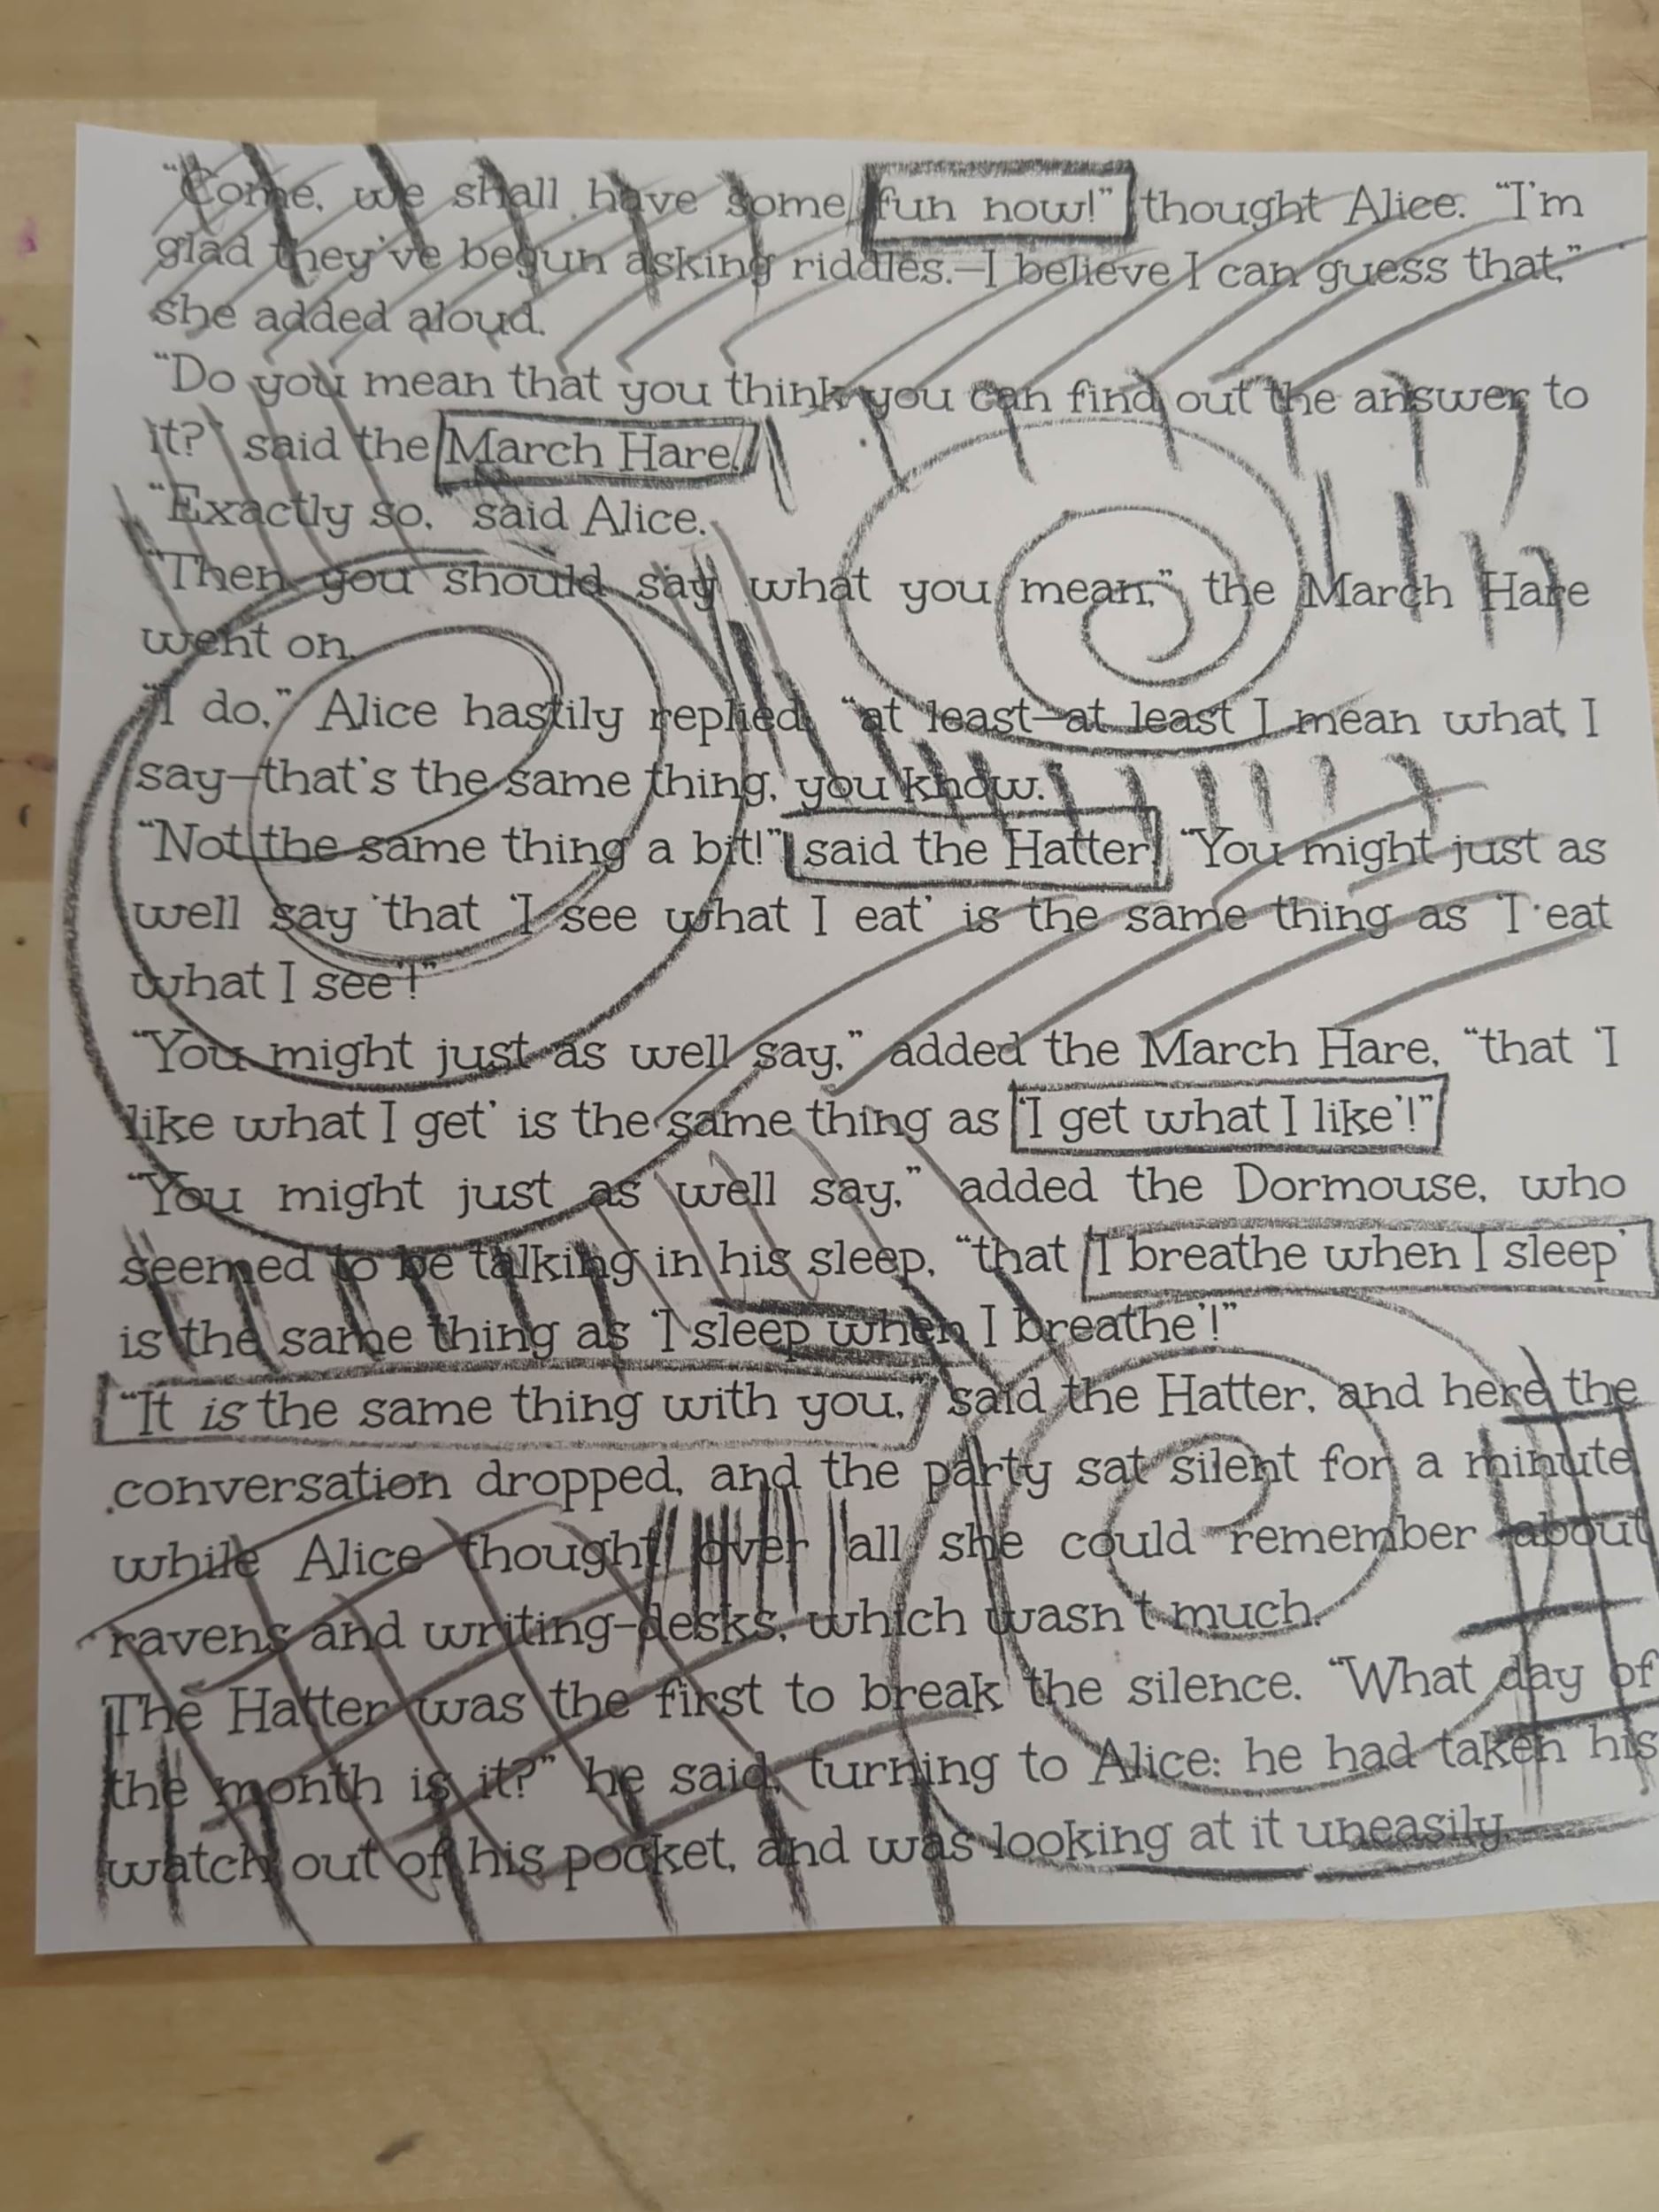 “Come, we shall have some fun now!” thought Alice. “I'm
glad they've begun asking riddles.—I believe I can guess that,”
she added aloud.
“Do you mean that you think you can find out the answer to
it?” said the March Hare.
“Exactly so,” said Alice.
“Then you should say what you mean,” the March Hare
went on.
“I do,” Alice hastily replied; “at least—at least I mean what I
say—that's the same thing, you know.”
“Not the same thing a bit!” said the Hatter. “You might just as
well say that ‘I see what I eat’ is the same thing as ‘I eat
what I see’!”
“You might just as well say,” added the March Hare, “that ‘I
like what I get’ is the same thing as ‘I get what I like’!”
“You might just as well say,” added the Dormouse, who
seemed to be talking in his sleep, “that ‘I breathe when I sleep’
is the same thing as ‘I sleep when I breathe’!”
“It is the same thing with you,” said the Hatter, and here the
conversation dropped, and the party sat silent for a minute,
while Alice thought over all she could remember about
ravens and writing-desks, which wasn't much.
The Hatter was the first to break the silence. “What day of
the month is it?” he said, turning to Alice: he had taken his
watch out of his pocket, and was looking at it uneasily,